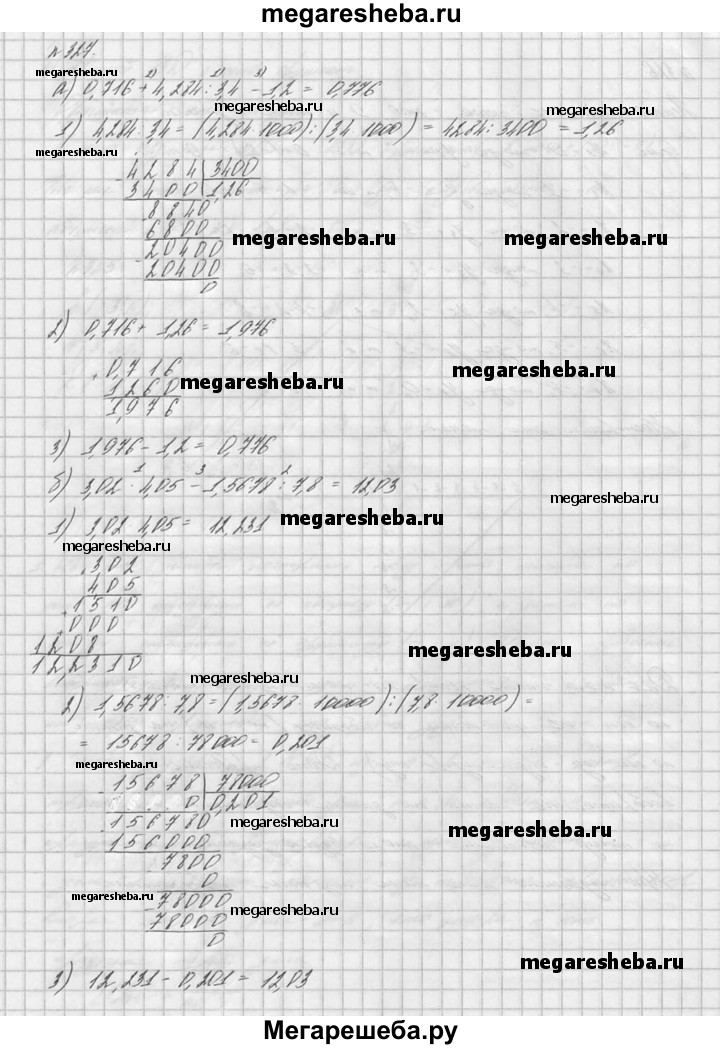 megaresheba.ru
№ 327.
megaresheba.ru 2) 1) 3)
а) 0,716 + 4,284 : 3,4 - 1,2 = 0,776
megaresheba.ru
1) 4,284 : 3,4 = (4,284 · 1000) : (3,4 · 1000) = 4284 : 3400 = 1,26
megaresheba.ru
- 4284 | 3400
3400 | 1,26
- 8840
6800
megaresheba.ru megaresheba.ru
- 20400
20400
0
2) 0,716 + 1,26 = 1,976
+ 0,716
megaresheba.ru
1,260
megaresheba.ru
1,976
3) 1,976 - 1,2 = 0,776
1 3 2
б) 3,02 · 4,05 - 1,5678 : 7,8 = 12,03
megaresheba.ru
1) 3,02 · 4,05 = 12,231
megaresheba.ru
megaresheba.ru
302
405
1510
000
1208
megaresheba.ru
12,2310
megaresheba.ru
2) 1,5678 : 7,8 = (1,5678 · 10000) : (7,8 · 10000) =
= 15678 : 78000 = 0,201
megaresheba.ru
- 15678 | 78000
0 | 0,201
- 156780
megaresheba.ru
156000
megaresheba.ru
- 7800
0
megaresheba.ru
- 78000
megaresheba.ru
78000
0
megaresheba.ru
3) 12,231 - 0,201 = 12,03
Мегарешеба.ру